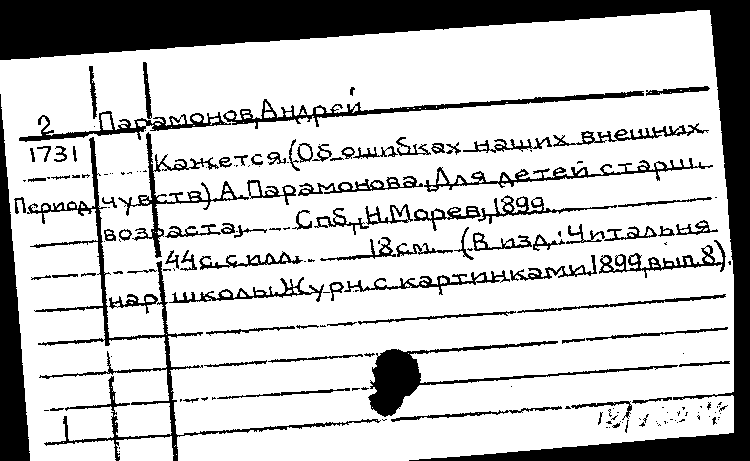 2 Парамонов, Андрей
1731 Кажется. (Об ошибках наших внешних
Период. чувств) А. Парамонова. [Для детей старш.
возраста]. Спб., Н. Морев, 1899.
44 с. с илл. 18 см. (В изд.: Читальня
нар. школы. Журн. с картинками. 1899, вып. 8).
1